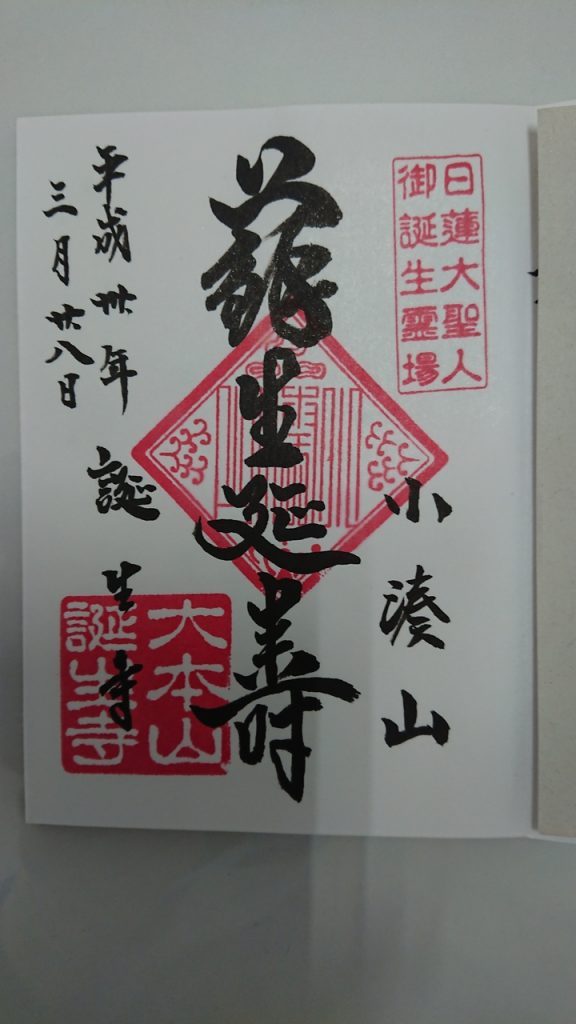 日蓮大聖人
御誕生靈場
小湊山
蘇生延壽
平成卅年 誕生寺
三月廿八日
大本山
誕生寺